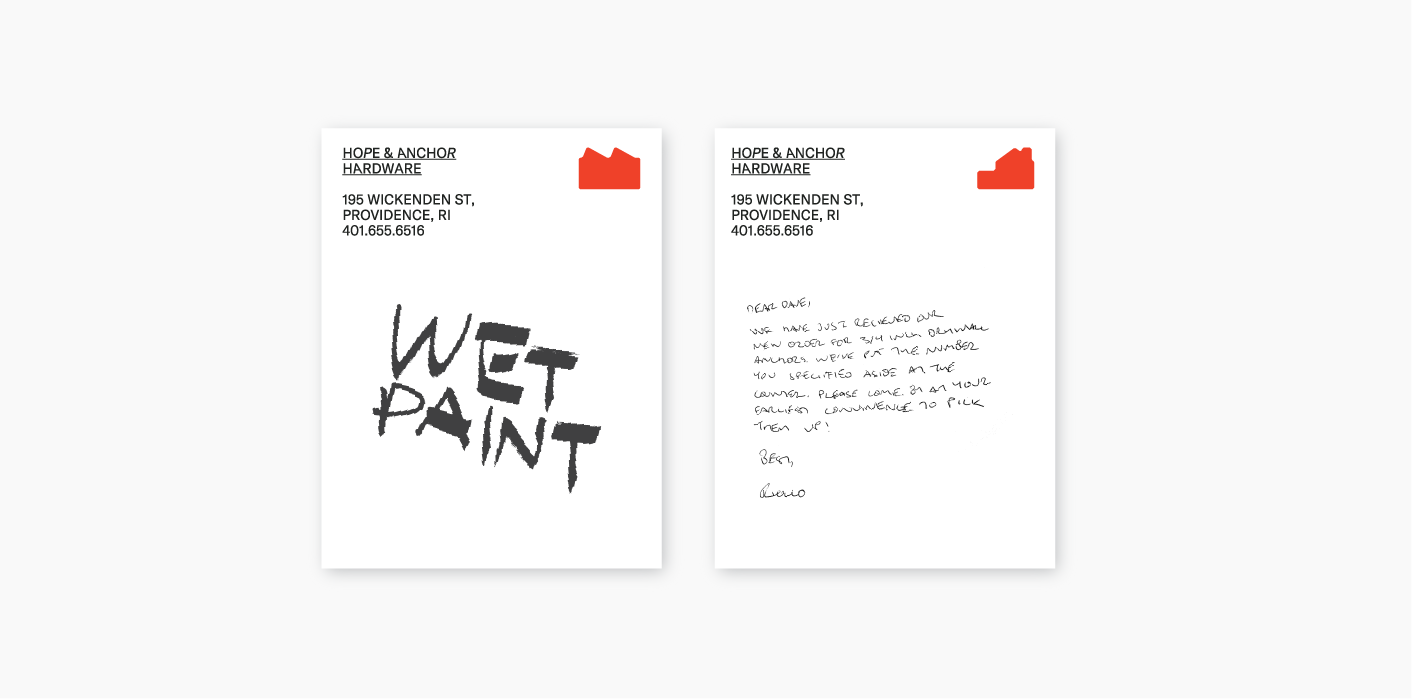 HOPE & ANCHOR
HARDWARE
195 WICKENDEN ST,
PROVIDENCE, RI
401.655.6516
WET
PAINT
HOPE & ANCHOR
HARDWARE
195 WICKENDEN ST,
PROVIDENCE, RI
401.655.6516
DEAR DAVE,
WE HAVE JUST RECIEVED OUR
NEW ORDER FOR 3/4 INCH DRYWALL
ANCHORS. WE'VE PUT THE NUMBER
YOU SPECIFIED ASIDE AT THE
COUNTER. PLEASE COME IN AT YOUR
EARLIEST CONVINENCE TO PICK
THEM UP!
BEST,